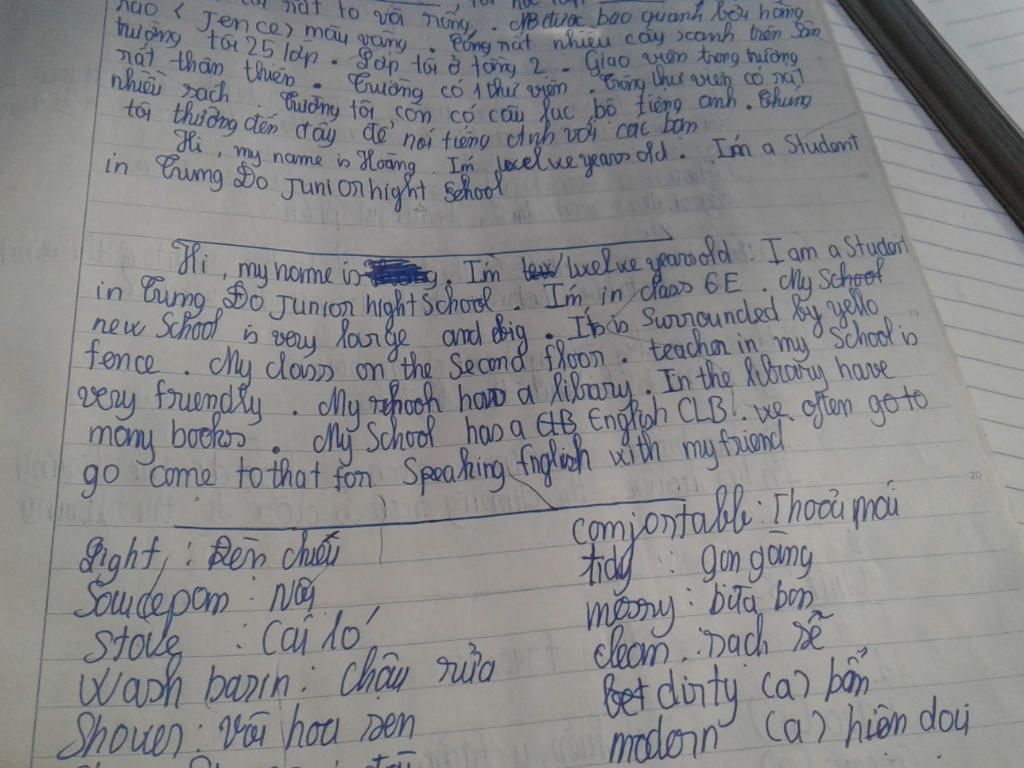 rất to và rộng. Nó được bao quanh bởi hàng
rào (Jence) màu vàng. Cống rất nhiều cây xanh trên sân
trường tôi 25 lớp. Lớp tôi ở tầng 2. Giáo viên trong trường
rất thân thiện. Trường có 1 thư viện. Trong thư viện có rất
nhiều sách. Trường tôi còn có câu lạc bộ tiếng anh. Chúng
tôi thường đến đây để nói tiếng Anh với các bạn
Hi, my name is Hoàng. I'm twelve years old. I'm a Student
in Trung Đô Junior hight School
Hi, my name is I'm twelve years old. I am a Student
in Trung Đô Junior hight School. I'm in class 6E. My School
new School is very large and big. It is Surrounded by yello
fence. My class on the Second floor. teacher in my School is
very friendly. My schooh has a library. In the library have
many books. My School has a CLB English CLB. we often go to
go come to that for Speaking English with my friend
Light : Đèn chiếu
Saucepam : Nồi
Stove : Cái lò
Wash basin : chậu rửa
Shower : vòi hoa sen
comjortable : Thoải mái
tidy : gọn gàng
messy : bừa bọn
clean : sạch sẽ
dirty (a) bẩn
modern (a) hiện đại